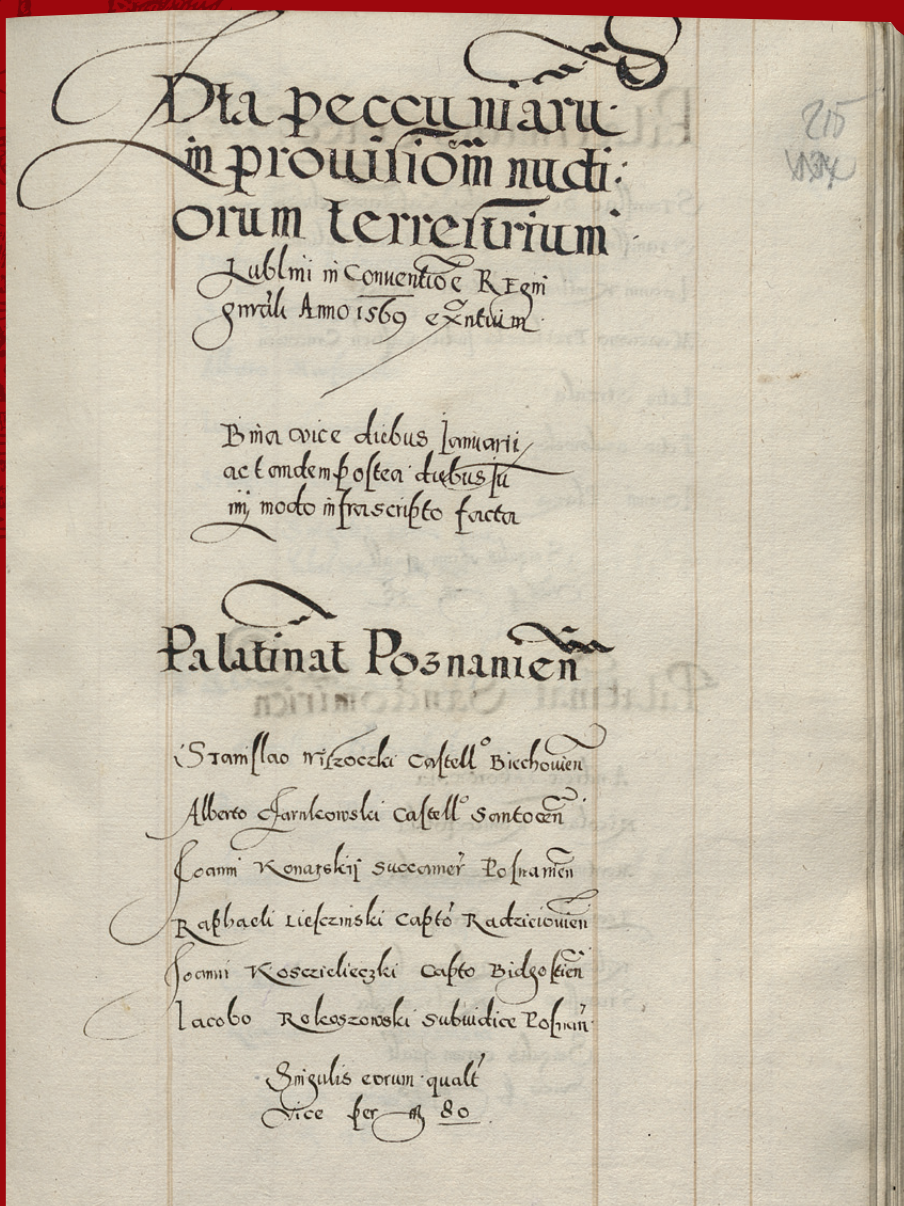 Dta peccuniaru
in provisiom nuctiorum terrestrium
Lublini in Conuentioe Regni
gnrali Anno 1569 exntium
Bina vice diebus Ianuarii
ac tandem postea diebus Iu
nij modo infrascripto facta
Palatinat Poznanien
Stanislao Wisoczki Castell° Biechouien
Alberto Czarnkowski Castell° Santocen
Joanni Konarskij Succamer Posnanien
Raphaeli Liesczinski Capto Radzieiouien
Joanni Kosczielieczki Capto Bidgostien
Iacobo Rokoszowski Subiudice Posnan
Singulis eorum qualt
vice per 80
215